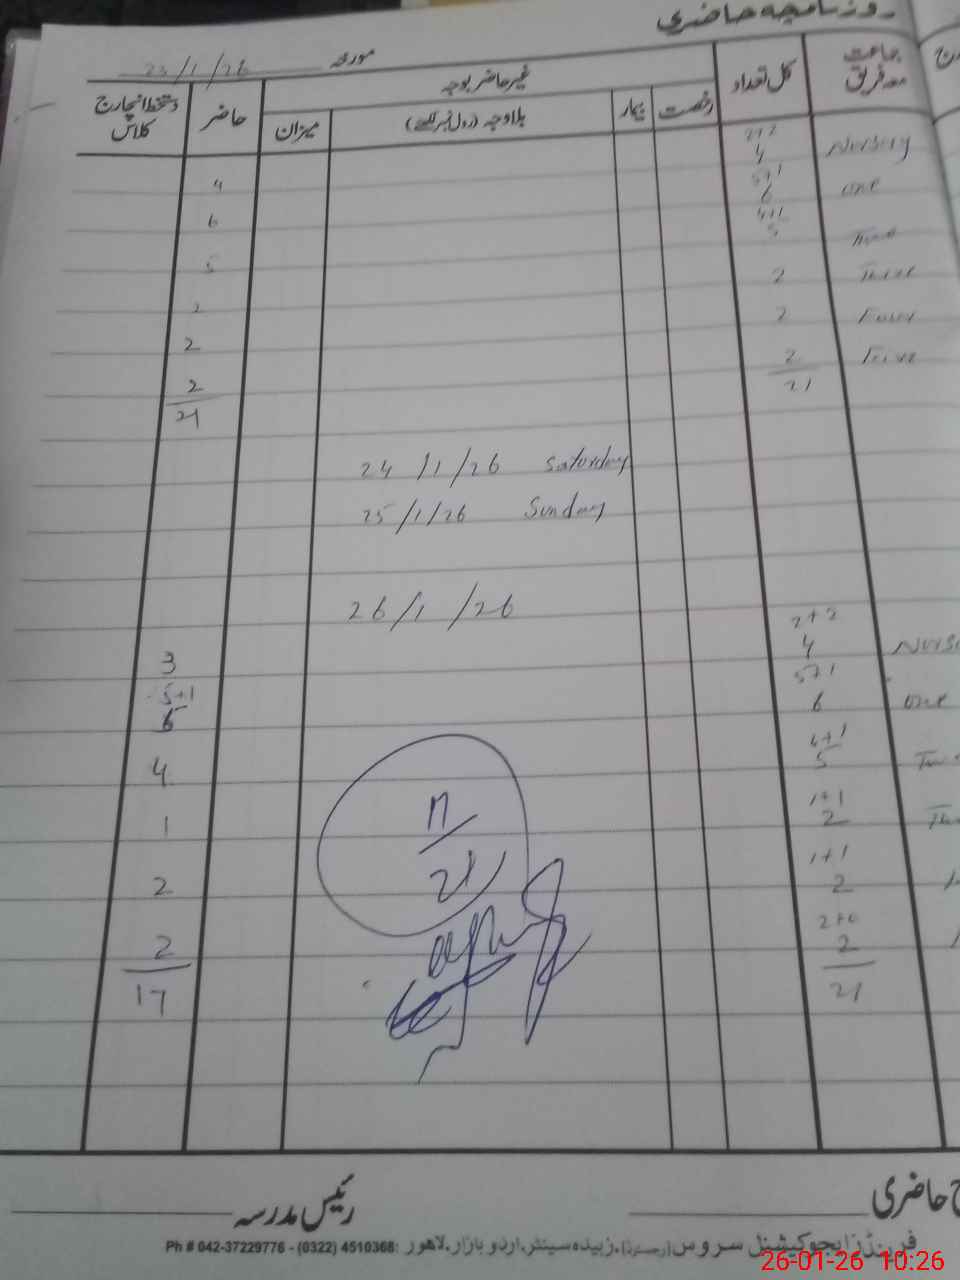 روزنامچہ حاضری
مورخہ 23/1/26
جماعت معہ فریق
کل تعداد
غیر حاضر بوجہ
رخصت
بیمار
بلاوجہ (رول نمبر لکھئے)
میزان
حاضر
دستخط انچارج کلاس
Nursery 2+2 4 4
one 5+1 6 6
Two 4+1 5 5
Three 2 2
Four 2 2
Five 2 2
21 21
24/1/26 Saturday
25/1/26 Sunday
26/1/26
2+2 4 3
one 5+1 6 5+1 6
4+1 5 4
1+1 2 1
1+1 2 2
2+0 2 2
21 17
17/21
حاضری
رئیس مدرسہ
فرینڈز ایجوکیشنل سروس (رجسٹرڈ)، زبیدہ سینٹر، اردو بازار، لاہور Ph # 042-37229776 - (0322) 4510368:
26-01-26 10:26